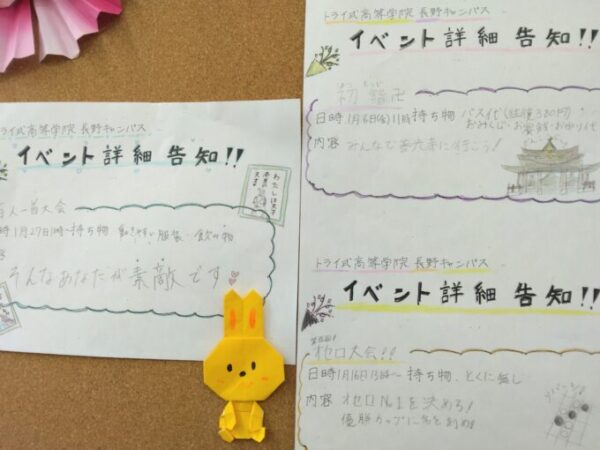 トライ式高等学院 長野キャンパス
イベント詳細 告知!!
百人一首大会
時 1月27日 1時〜 持ち物 動きやすい服装・飲み物
そんなあなたが素敵です
トライ式高等学院 長野キャンパス
イベント詳細 告知!!
初詣卍
日時 1月6日(金)11時 持ち物 バス代(往復300円)
おみくじ・お賽銭・お守り代
内容 みんなで善光寺に行こう!
トライ式高等学院 長野キャンパス
イベント詳細 告知!!
オセロ大会!!
日時 1月16日 13時〜 持ち物 とくに無し
内容 オセロNo.1を決めろ!
優勝カップに名を刻め!